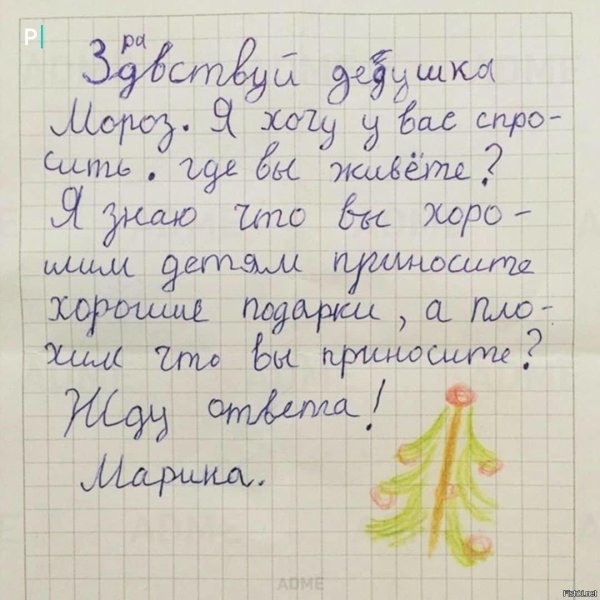 P
Здравствуй дедушка
Мороз. Я хочу у вас спро-
сить. где вы живёте?
Я знаю что вы хоро-
шим детям приносите
хорошие подарки, а пло-
хим что вы приносите?
Жду ответа!
Марина.
ADME
Fishki.net